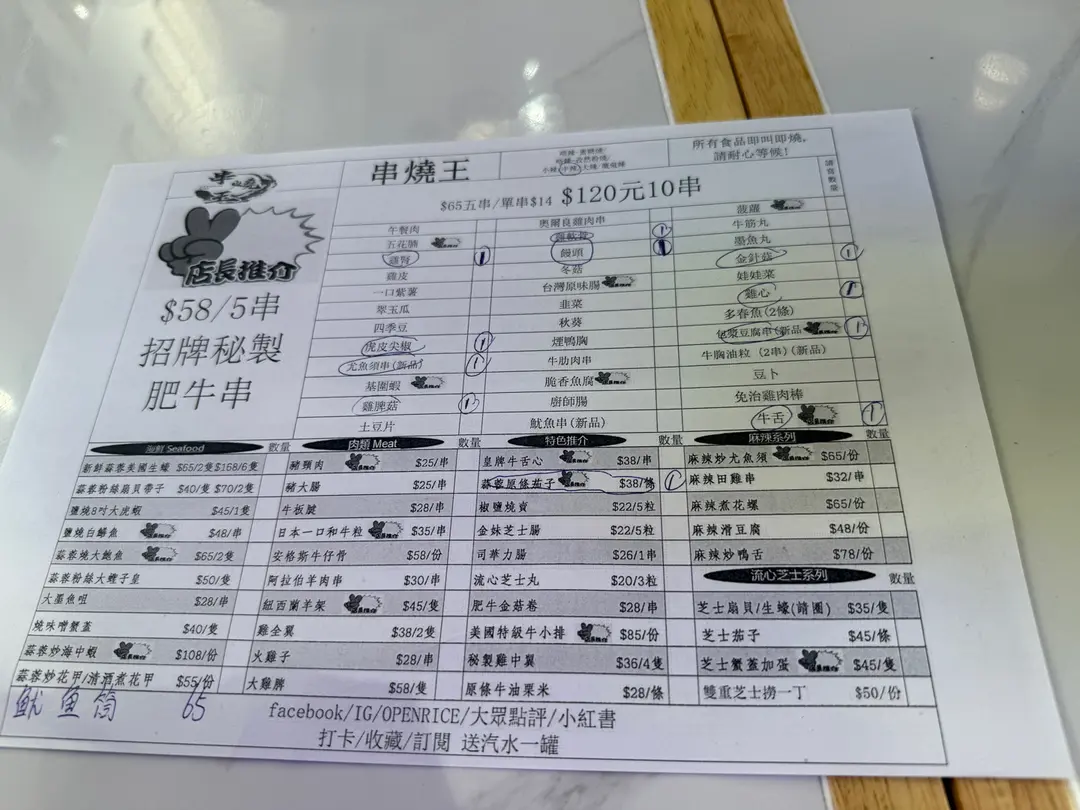 串燒王
所有食品即叫即燒,
請耐心等候!
$65五串/單串$14 $120元10串
店長推介
$58/5串
招牌秘製
肥牛串
午餐肉
五花腩
雞腎 1
雞皮
一口紫薯
翠玉瓜
四季豆
虎皮尖椒 1
尤魚須串(新品) 1
基圍蝦
雞脾菇 1
土豆片
奧爾良雞肉串
雞軟骨 1
饅頭 1
冬菇
台灣原味腸
韭菜
秋葵
煙鴨胸
牛肋肉串
脆香魚腐
廚師腸
魷魚串(新品)
請寫數量
菠蘿
牛筋丸
墨魚丸
金針菇 1
娃娃菜
雞心 1
多春魚(2條)
包漿豆腐串(新品) 1
牛胸油粒 (2串)(新品)
豆卜
免治雞肉棒
牛舌 1
海鮮 Seafood 數量
新鮮蒜蓉美國生蠔 $65/2隻$168/6隻
蒜蓉粉絲扇貝帶子 $40/隻 $70/2隻
鹽燒8吋大虎蝦 $45/1隻
鹽燒白鱔魚 $48/串
蒜蓉燒大鮑魚 $65/2隻
蒜蓉粉絲大蟶子皇 $50/隻
大墨魚咀 $28/串
燒味噌蟹蓋 $40/隻
蒜蓉炒海中蝦 $108/份
蒜蓉炒花甲/清酒煮花甲 $55/份
魷魚筒 65
肉類 Meat 數量
豬頸肉 $25/串
豬大腸 $25/串
牛板腱 $28/串
日本一口和牛粒 $35/串
安格斯牛仔骨 $58/份
阿拉伯羊肉串 $30/串
紐西蘭羊架 $45/隻
雞全翼 $38/2隻
火雞子 $28/串
大雞髀 $58/隻
特色推介 數量
皇牌牛舌心 $38/串
蒜蓉原條茄子 $38/條 1
椒鹽燒賣 $22/5粒
金妹芝士腸 $22/5粒
司華力腸 $26/1串
流心芝士丸 $20/3粒
肥牛金菇卷 $28/串
美國特級牛小排 $85/份
秘製雞中翼 $36/4隻
原條牛油粟米 $28/條
麻辣系列 數量
麻辣炒尤魚須 $65/份
麻辣田雞串 $32/串
麻辣煮花螺 $65/份
麻辣滑豆腐 $48/份
麻辣炒鴨舌 $78/份
流心芝士系列 數量
芝士扇貝/生蠔(請圈) $35/隻
芝士茄子 $45/條
芝士蟹蓋加蛋 $45/隻
雙重芝士撈一丁 $50/份
facebook/IG/OPENRICE/大眾點評/小紅書
打卡/收藏/訂閱 送汽水一罐